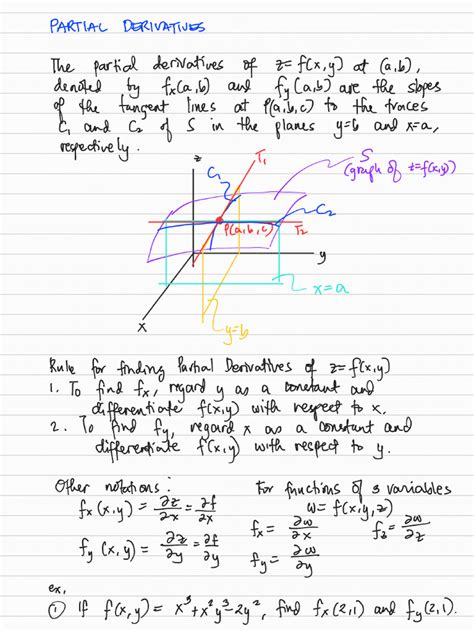 PARTIAL DERIVATIVES
The partial derivatives of z=f(x,y) at (a,b),
denoted by fx(a,b) and fy(a,b) are the slopes
of the tangent lines at P(a,b,c) to the traces
C₁ and C₂ of S in the planes y=b and x=a,
respectively.
z
T₁
C₁
S
(graph of z=f(x,y))
C₂
P(a,b,c)
T₂
y
x=a
x
y=b
Rule for finding Partial Derivatives of z=f(x,y)
1. To find fx, regard y as a constant and
differentiate f(x,y) with respect to x.
2. To find fy, regard x as a constant and
differentiate f(x,y) with respect to y.
Other notations:
fx(x,y) = ∂z/∂x = ∂f/∂x
fy(x,y) = ∂z/∂y = ∂f/∂y
For functions of 3 variables
w=f(x,y,z)
fx = ∂w/∂x
fz = ∂w/∂z
fy = ∂w/∂y
ex.
① If f(x,y) = x³+x²y³-2y², find fx(2,1) and fy(2,1).